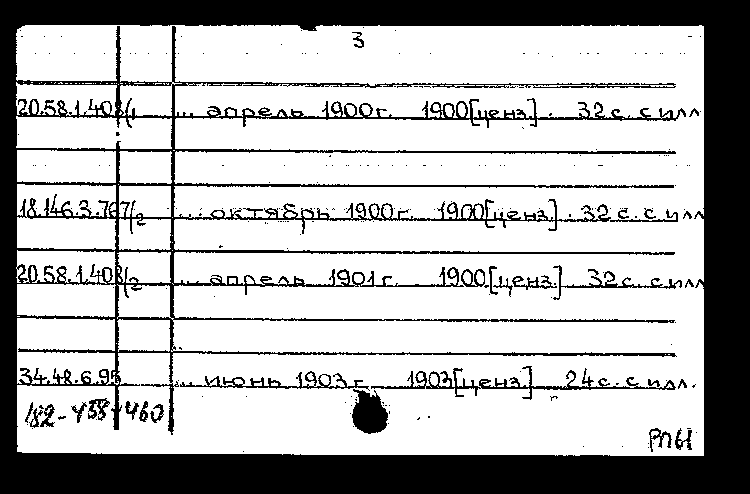 3
20.58.1.408/1 ... апрель 1900г. 1900[ценз.]. 32 с. с илл
18.146.3.767/2 ... октябрь 1900г. 1900[ценз.]. 32 с. с илл
20.58.1.408/2 ... апрель 1901г. 1900[ценз.] 32 с. с илл
34.48.6.95 ... июнь 1903г. 1903[ценз.] 24 с. с илл.
182-458+460
РП61